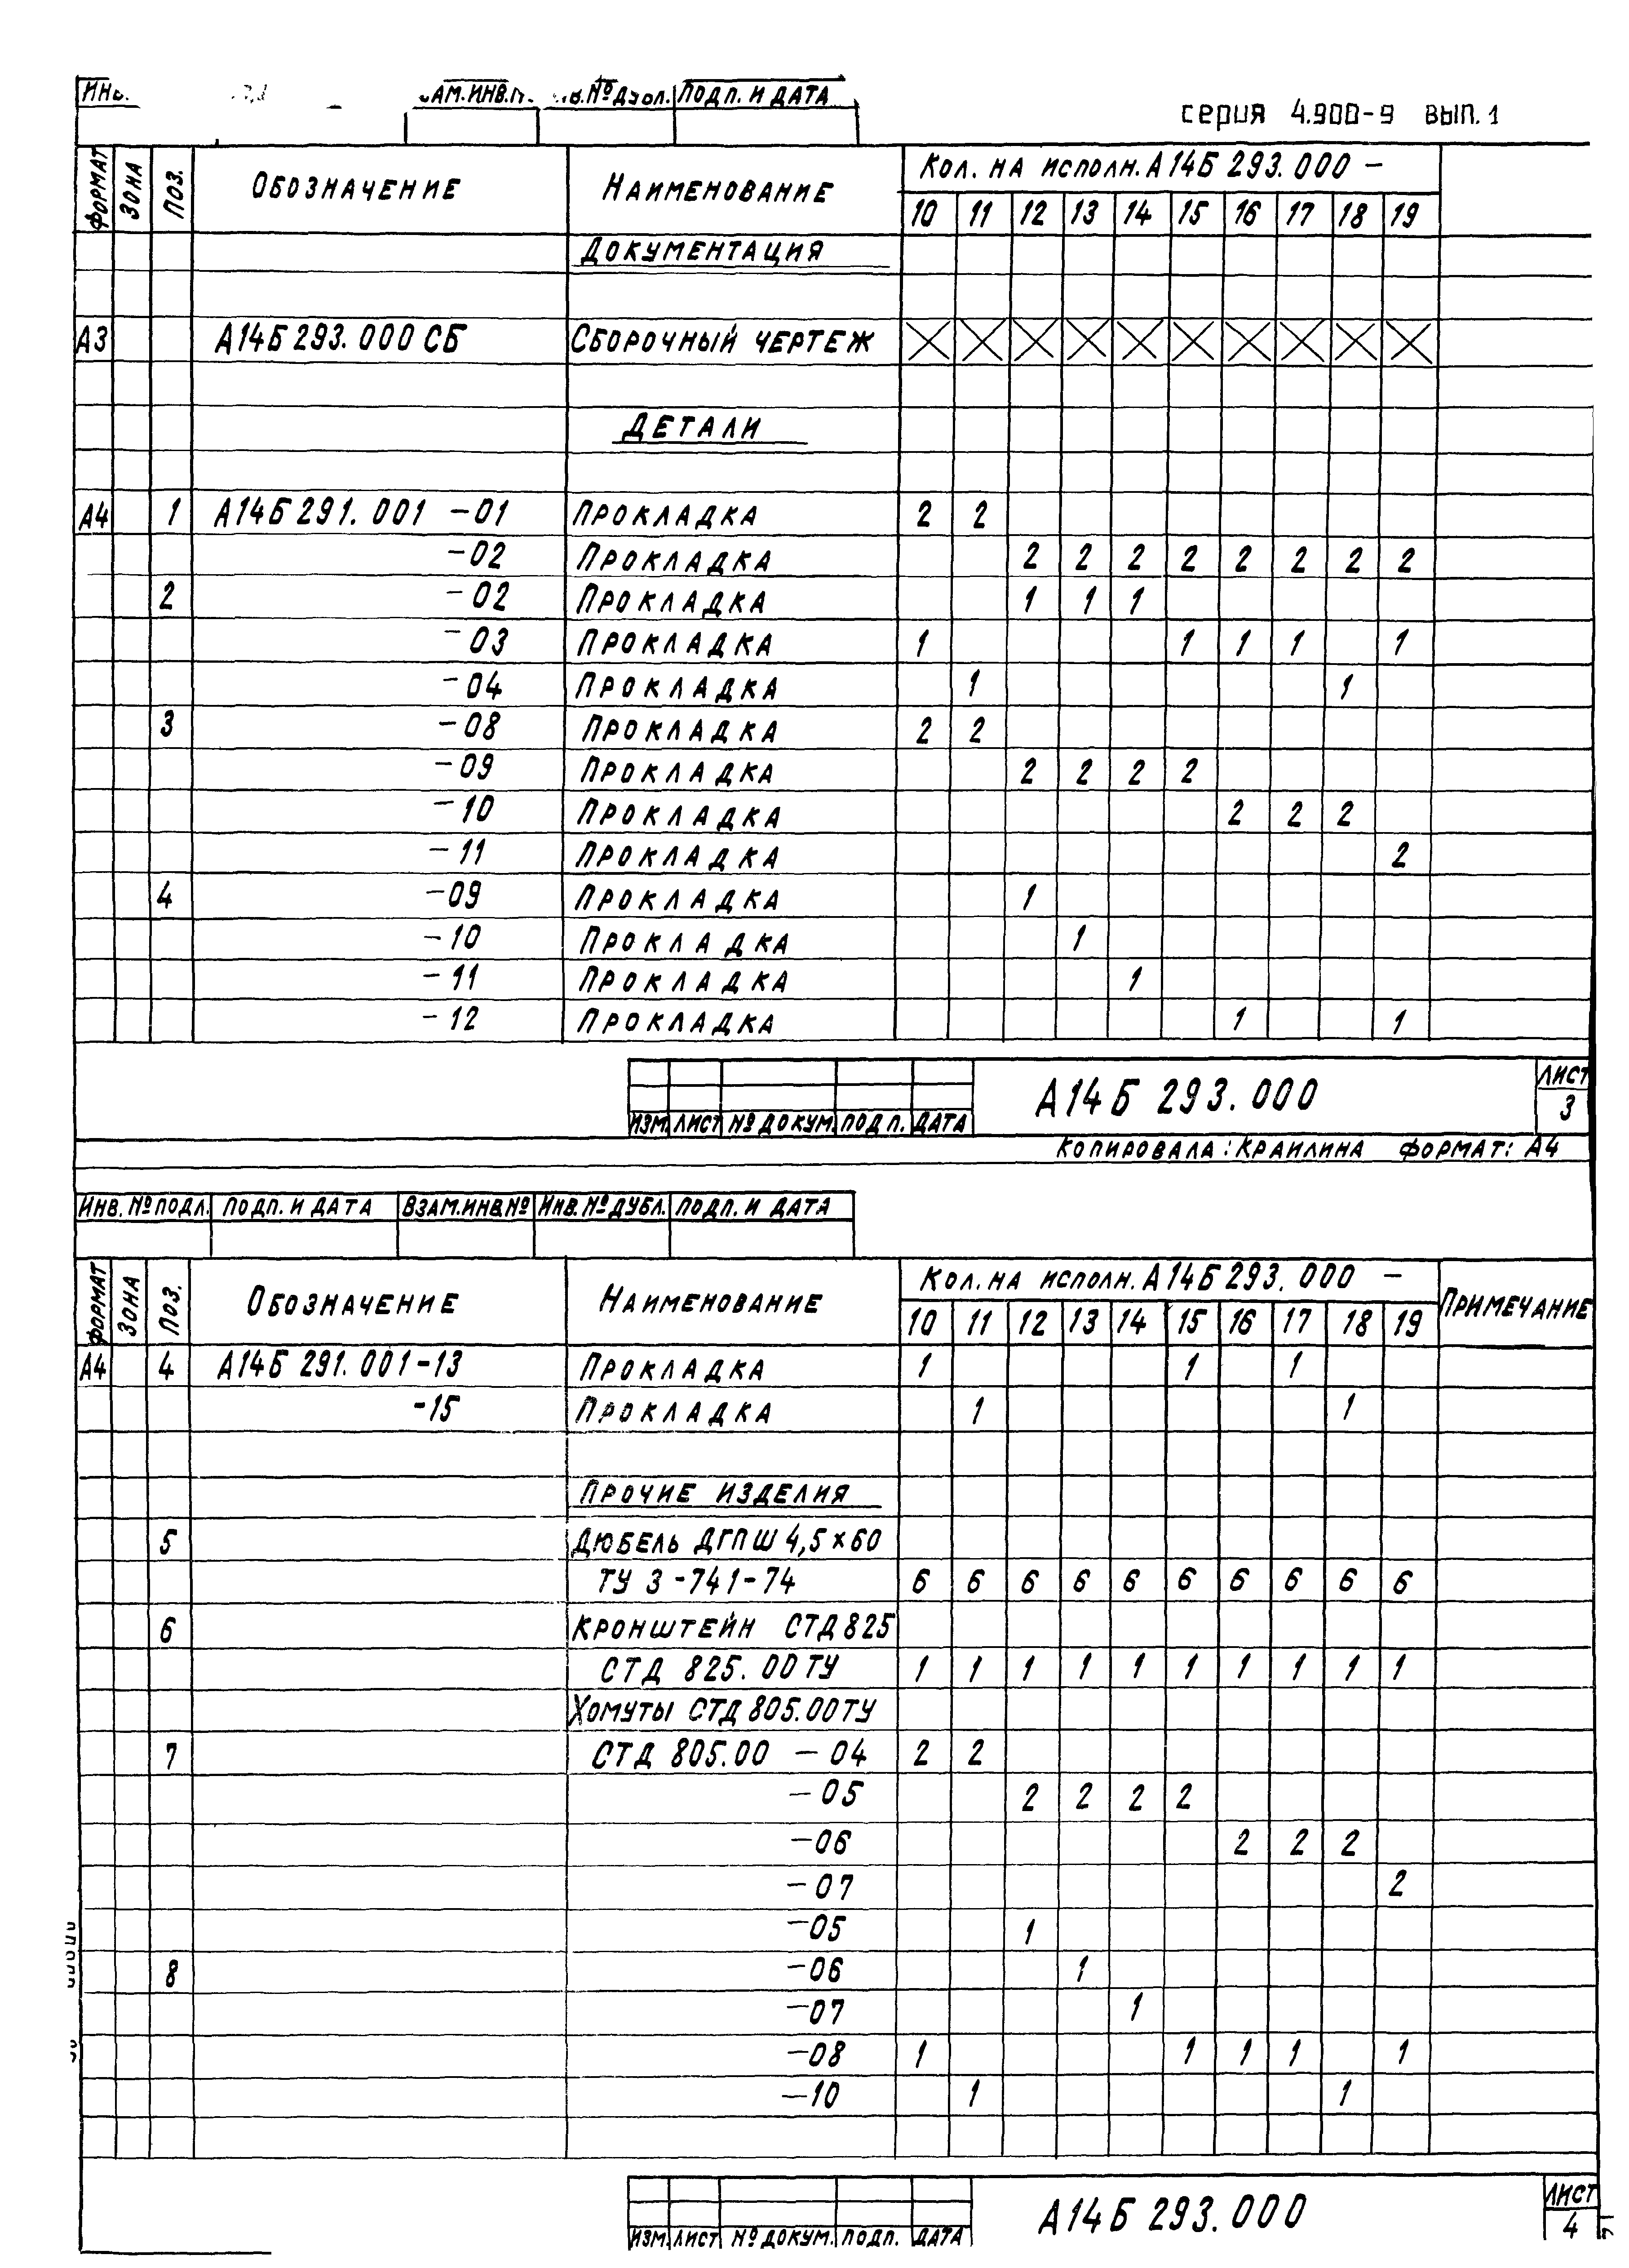 серия 4.900-9 вып.1
ПОДП. И ДАТА
ФОРМАТ ЗОНА ПОЗ. ОБОЗНАЧЕНИЕ НАИМЕНОВАНИЕ КОЛ. НА ИСПОЛН. А14Б 293.000 —
10 11 12 13 14 15 16 17 18 19
ДОКУМЕНТАЦИЯ
А3 А14Б 293.000 СБ СБОРОЧНЫЙ ЧЕРТЕЖ
ДЕТАЛИ
А4 1 А14Б 291.001 -01 ПРОКЛАДКА 2 2
-02 ПРОКЛАДКА 2 2 2 2 2 2 2 2
2 -02 ПРОКЛАДКА 1 1 1
-03 ПРОКЛАДКА 1 1 1 1 1
-04 ПРОКЛАДКА 1 1
3 -08 ПРОКЛАДКА 2 2
-09 ПРОКЛАДКА 2 2 2 2
-10 ПРОКЛАДКА 2 2 2
-11 ПРОКЛАДКА 2
4 -09 ПРОКЛАДКА 1
-10 ПРОКЛАДКА 1
-11 ПРОКЛАДКА 1
-12 ПРОКЛАДКА 1 1
А14Б 293.000 ЛИСТ
3
ИЗМ. ЛИСТ № ДОКУМ. ПОДП. ДАТА
КОПИРОВАЛА: КРАИЛИНА ФОРМАТ: А4
ИНВ. № ПОДЛ. ПОДП. И ДАТА ВЗАМ. ИНВ. № ИНВ. № ДУБЛ. ПОДП. И ДАТА
ФОРМАТ ЗОНА ПОЗ. ОБОЗНАЧЕНИЕ НАИМЕНОВАНИЕ КОЛ. НА ИСПОЛН. А14Б 293.000 — ПРИМЕЧАНИЕ
10 11 12 13 14 15 16 17 18 19
А4 4 А14Б 291.001-13 ПРОКЛАДКА 1 1 1
-15 ПРОКЛАДКА 1 1
ПРОЧИЕ ИЗДЕЛИЯ
5 ДЮБЕЛЬ ДГПШ 4,5×60
ТУ 3-741-74 6 6 6 6 6 6 6 6 6 6
6 КРОНШТЕЙН СТД 825
СТД 825.00 ТУ 1 1 1 1 1 1 1 1 1 1
ХОМУТЫ СТД 805.00 ТУ
7 СТД 805.00 -04 2 2
-05 2 2 2 2
-06 2 2 2
-07 2
-05 1
8 -06 1
-07 1
-08 1 1 1 1 1
-10 1 1
А14Б 293.000 ЛИСТ
4
ИЗМ. ЛИСТ № ДОКУМ. ПОДП. ДАТА